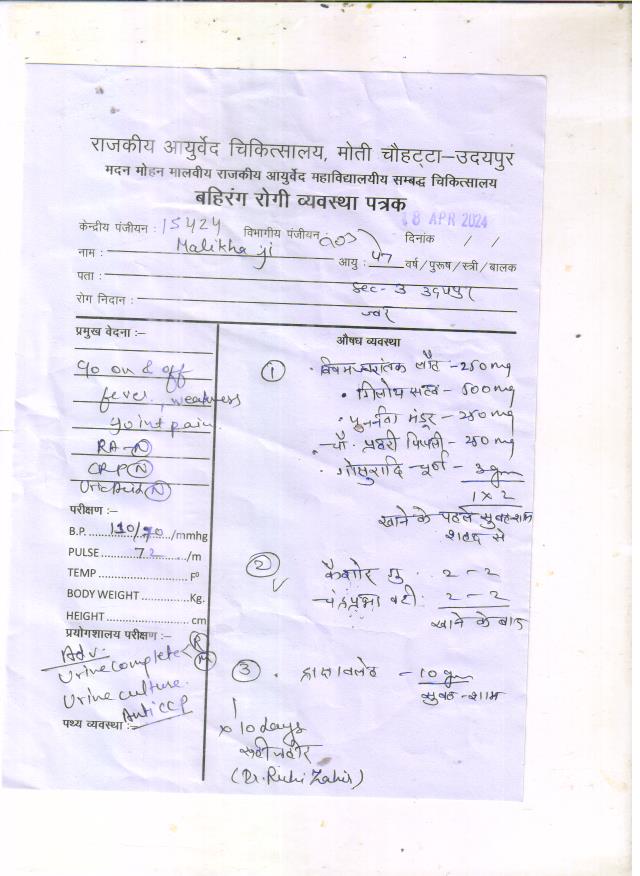 राजकीय आयुर्वेद चिकित्सालय, मोती चौहट्टा–उदयपुर
मदन मोहन मालवीय राजकीय आयुर्वेद महाविद्यालयीय सम्बद्ध चिकित्सालय
बहिरंग रोगी व्यवस्था पत्रक
18 APR 2024
केन्द्रीय पंजीयन : 15424 विभागीय पंजीयन दिनांक / /
नाम : Malikha ji आयु : वर्ष/पुरूष/स्त्री/बालक
पता : Sec- 3 उदयपुर
रोग निदान : ज्वर
प्रमुख वेदना :–
C/o on & off
fever, weakness
joint pain
RA-N
CRP N
Uric Acid N
परीक्षण :–
B.P. 110/70 /mmhg
PULSE 72 /m
TEMP F⁰
BODY WEIGHT Kg.
HEIGHT cm
प्रयोगशालय परीक्षण :–
Adv.
Urine complete R M
Urine culture.
Anti CCP
पथ्य व्यवस्था :–
औषध व्यवस्था
1 · विषमज्वरांतक लौह - 250 mg
· गिलोय सत्व - 500 mg
· पुनर्नवा मंडूर - 250 mg
प्रहरी पिपली - 250 mg
चूर्ण - 3 gm
1 x 2
खाने के पहले सुबह-शाम
शहद से
2 कैशोर गु. 2 - 2
चंद्रप्रभा वटी : 2 - 2
खाने के बाद
3 · द्राक्षावलेह - 10 gm
सुबह-शाम
x 10 days